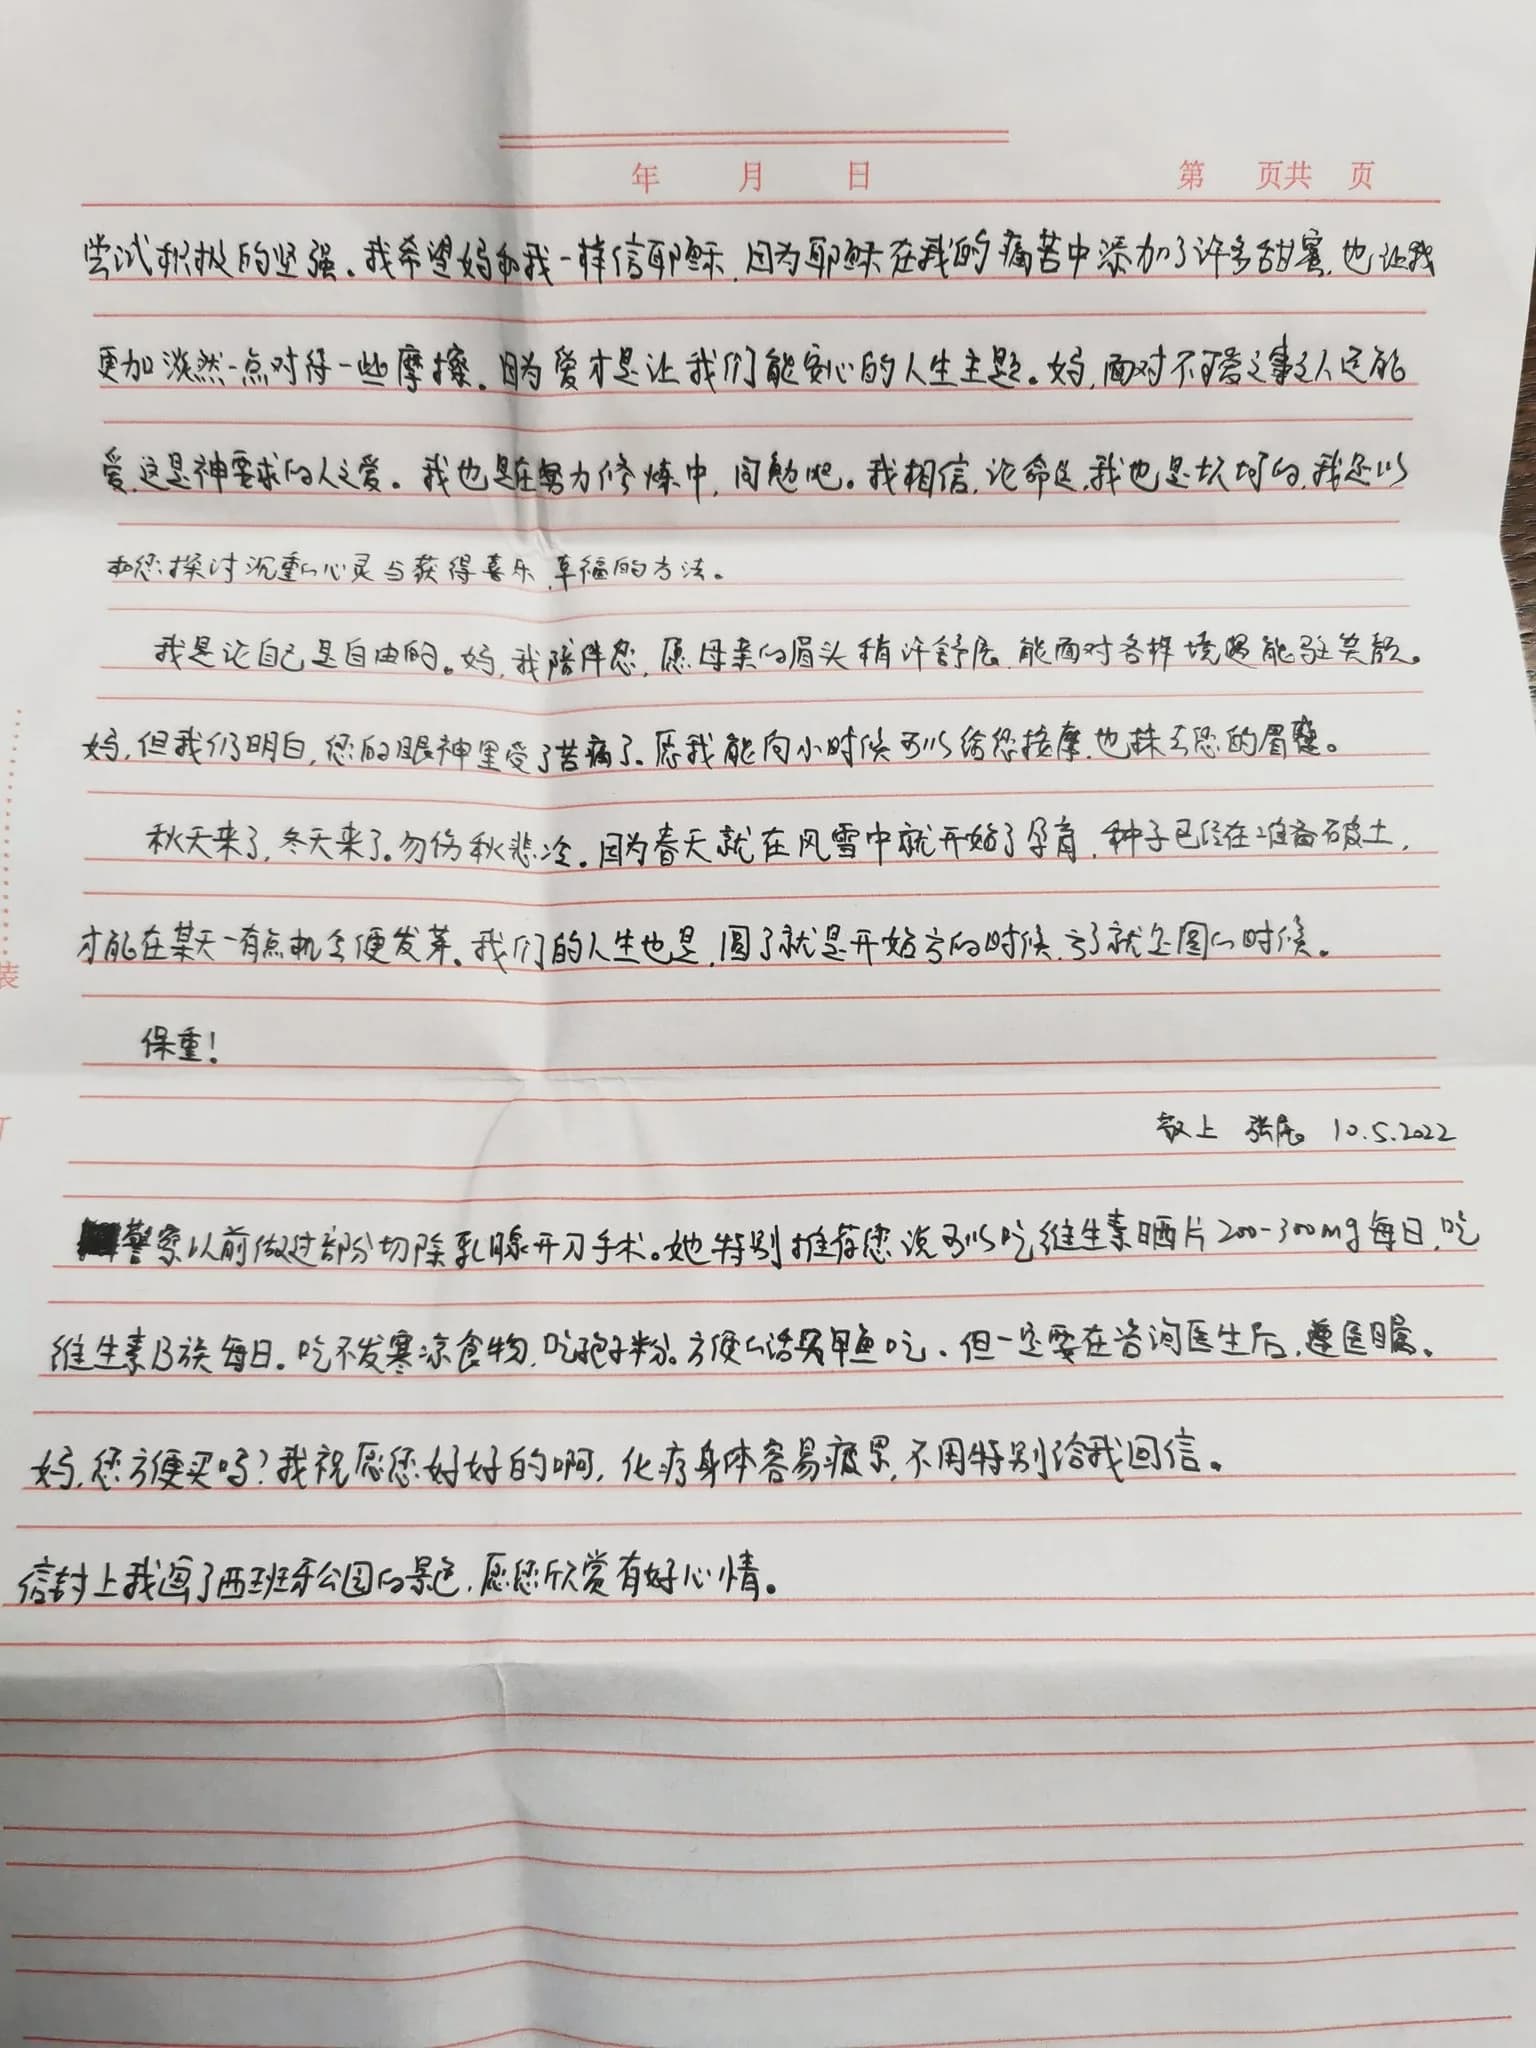 年 月 日 第 页共 页
尝试积极的坚强。我希望妈和我一样信耶稣,因为耶稣在我的痛苦中添加了许多甜蜜,也让我
更加淡然一点对待一些摩擦。因为爱才是让我们能安心的人生主题。妈,面对不可爱之事之人还能
爱,这是神要求的人之爱。我也是在努力修炼中,同勉吧。我相信,论命运,我也是坎坷的,我足以
和您探讨沉重的心灵与获得喜乐,幸福的方法。
我是说自己是自由的。妈,我陪伴您,愿母亲的眉头稍许舒展,能面对各样境遇能驻笑颜。
妈,但我们明白,您的眼神里受了苦痛了。愿我能向小时候可以给您按摩,也抹去您的眉蹙。
秋天来了,冬天来了。勿伤秋悲冷。因为春天就在风雪中就开始了孕育,种子已经在准备破土,
才能在某天一有点机会便发芽。我们的人生也是,圆了就是开始亏的时候,亏了就是圆的时候。
保重!
敬上 张展。10.5.2022
警察以前做过部分切除乳腺开刀手术。她特别推荐您说可以吃维生素硒片200-300mg每日,吃
维生素B族每日。吃不发寒凉食物,吃孢子粉。方便的话买甲鱼吃。但一定要在咨询医生后,遵医嘱。
妈,您方便买吗?我祝愿您好好的啊,化疗身体容易疲累,不用特别给我回信。
信封上我画了西班牙公园的景色,愿您欣赏有好心情。
装